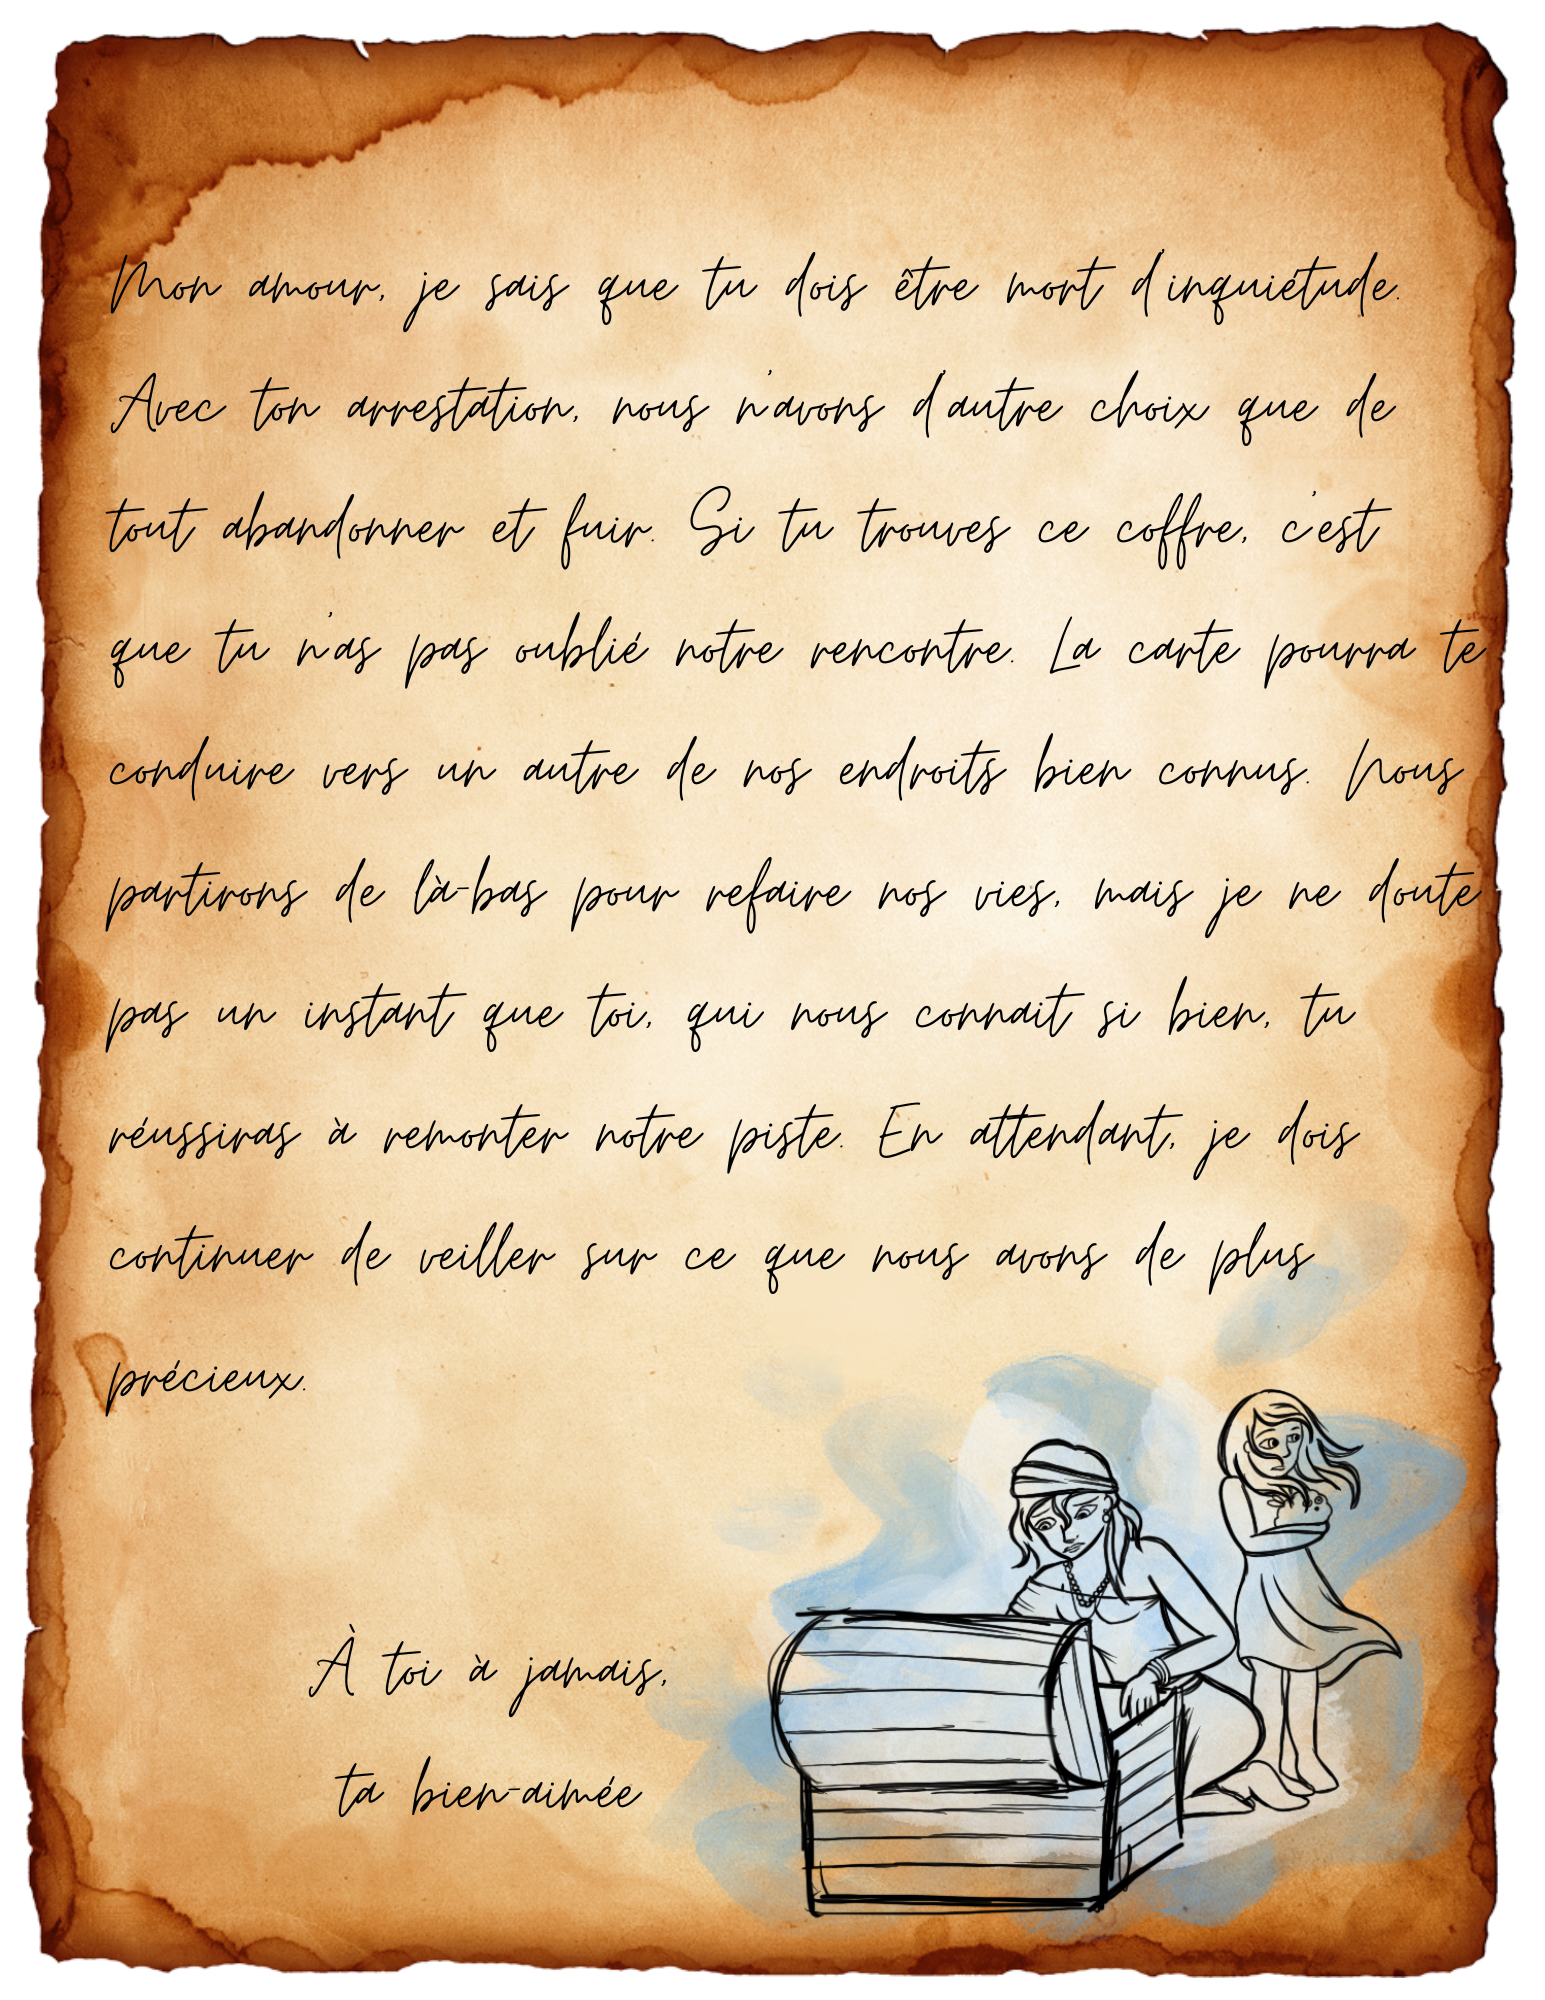 Mon amour, je sais que tu dois être mort d'inquiétude.
Avec ton arrestation, nous n'avons d'autre choix que de
tout abandonner et fuir. Si tu trouves ce coffre, c'est
que tu n'as pas oublié notre rencontre. La carte pourra te
conduire vers un autre de nos endroits bien connus. Nous
partirons de là-bas pour refaire nos vies, mais je ne doute
pas un instant que toi, qui nous connait si bien, tu
réussiras à remonter notre piste. En attendant, je dois
continuer de veiller sur ce que nous avons de plus
précieux.
À toi à jamais,
ta bien-aimée